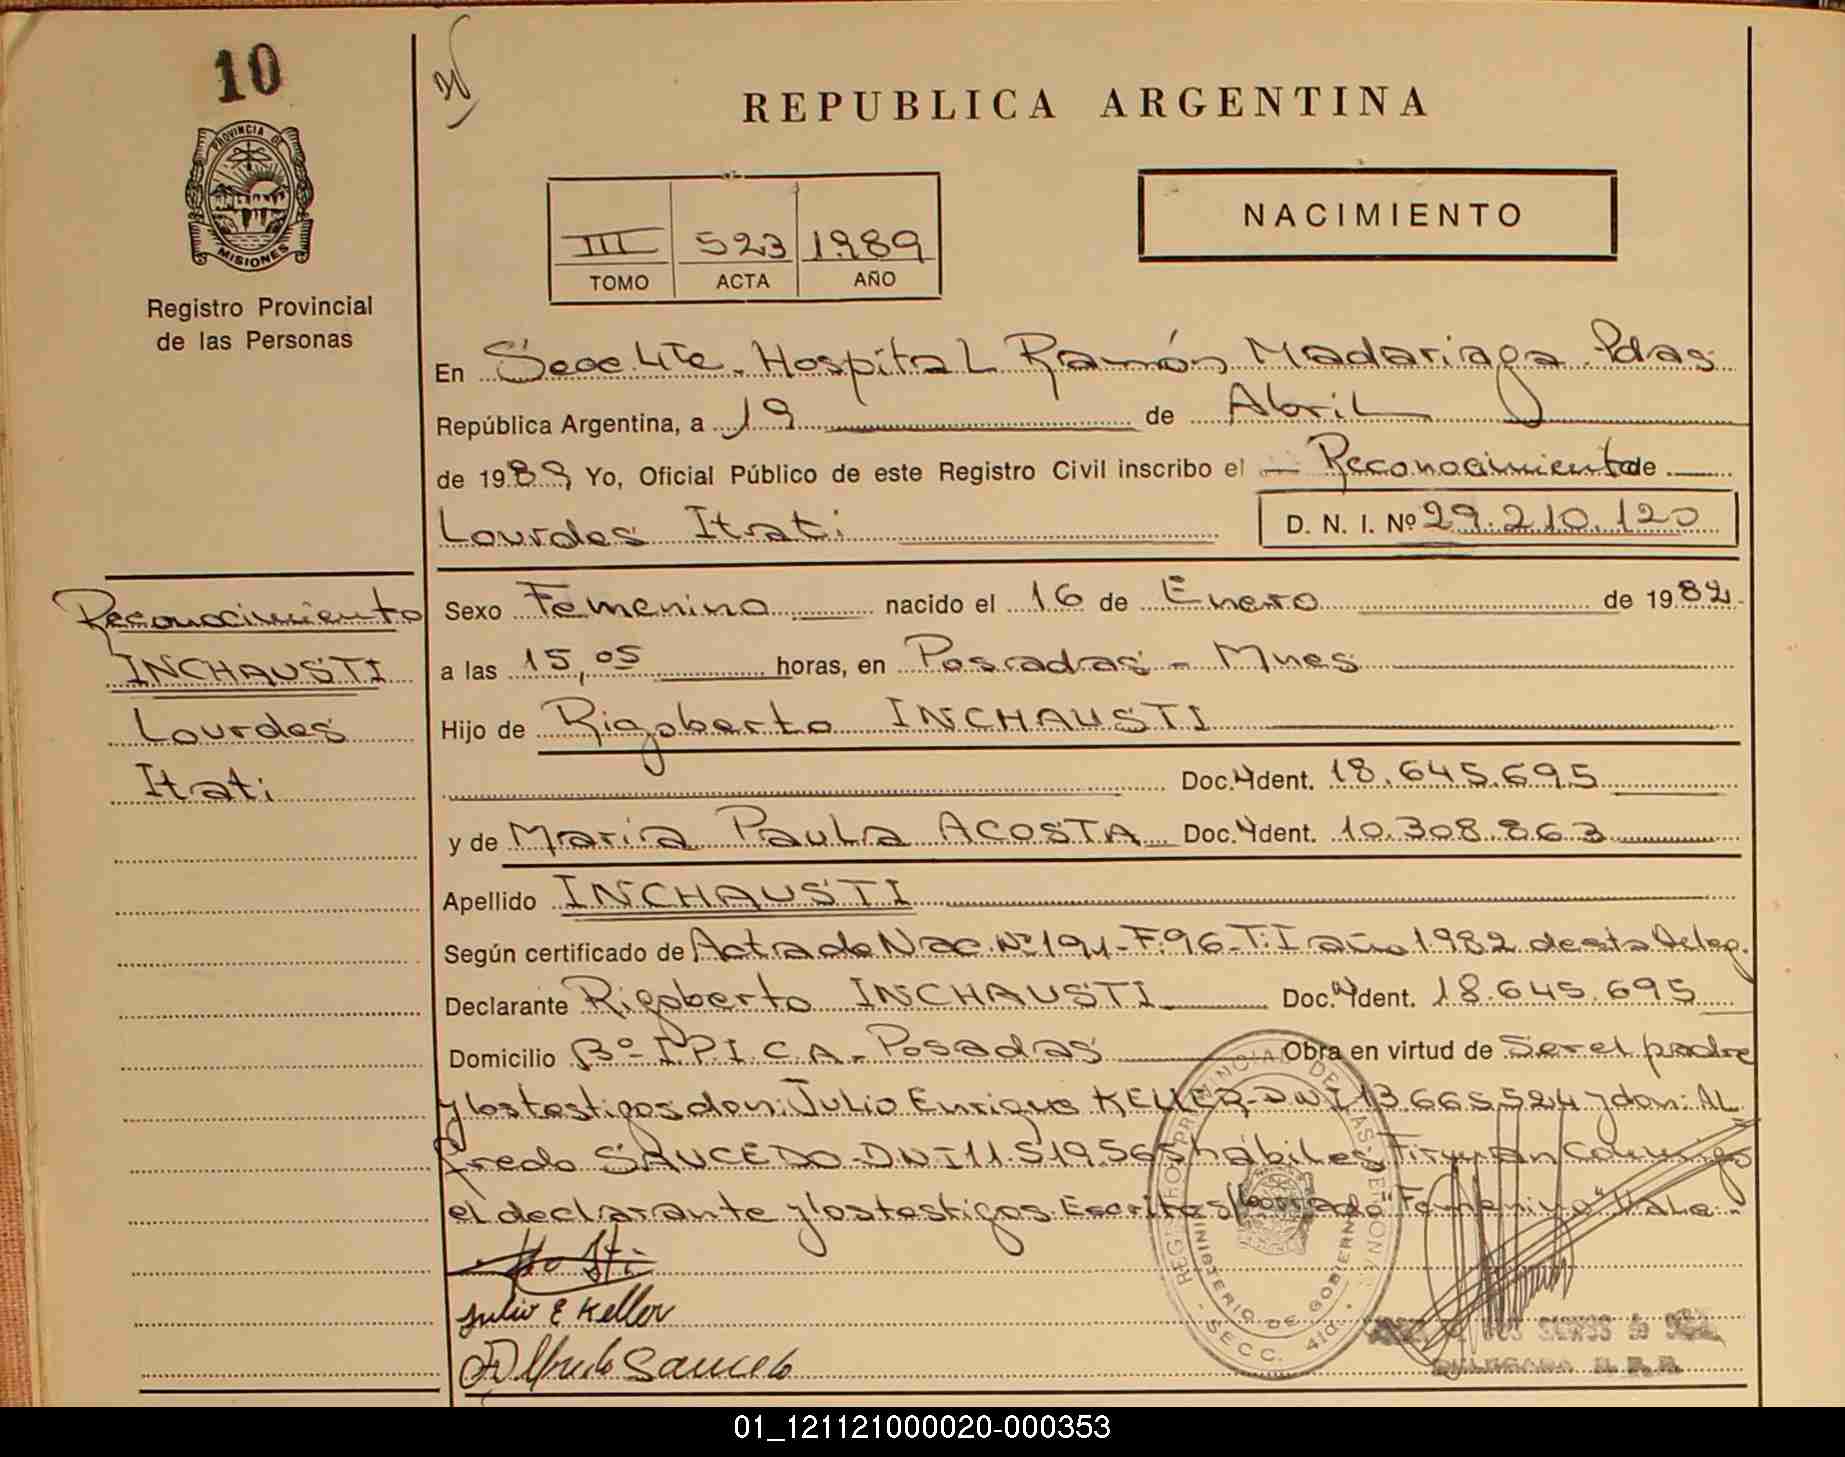 10
REPUBLICA ARGENTINA
PROVINCIA DE
MISIONES
Registro Provincial
de las Personas
III 523 1989
TOMO ACTA AÑO
NACIMIENTO
En Secc 4Te. Hospital Ramón Madariaga. Pdas
República Argentina, a 19 de Abril
de 1989 Yo, Oficial Público de este Registro Civil inscribo el Reconocimiento de
Lourdes Itati
D. N. I. Nº 29.210.120
Reconocimiento
INCHAUSTI
Lourdes
Itati
Sexo Femenino nacido el 16 de Enero de 1982
a las 15,05 horas, en Posadas - Mnes
Hijo de Rigoberto INCHAUSTI
Doc. Ident. 18.645.695
y de María Paula ACOSTA Doc. Ident. 10.308.863
Apellido INCHAUSTI
Según certificado de Acta de Nac. Nº 191-F.96-T.I año 1982 desta Deleg.
Declarante Rigoberto INCHAUSTI Doc. Ident. 18.645.695
Domicilio Bº I.P.I.C.A - Posadas Obra en virtud de Ser el padre
y los testigos don: Julio Enrique KELLER-DNI 13.665.524 y don: AL
fredo SAUCEDO-DNI 11.519.565 hábiles Firman Conmigo
el declarante y los testigos. Escritos/borrado "Femenino" Vale.-
Julio E Keller
Alfredo Saucedo
REGISTRO PROVINCIAL DE LAS PERSONAS
MINISTERIO DE GOBIERNO
SECC. 4ta.
DELEGADA R. P. P.
01_121121000020-000353